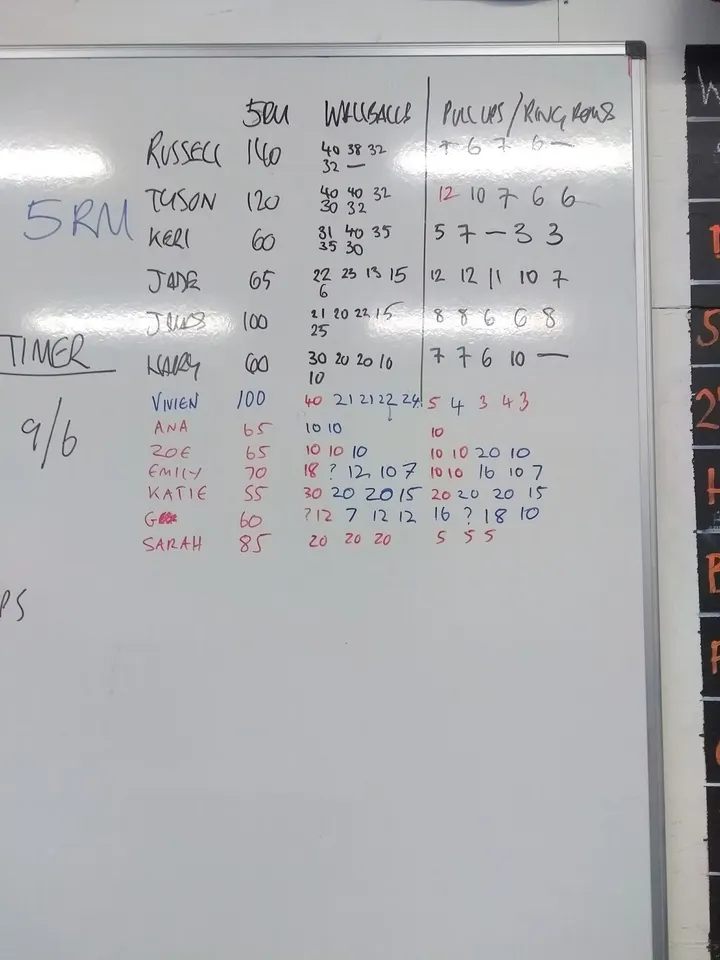 5RM WALLBALLS PULL UPS / RING ROWS
RUSSELL 140 40 38 32 7 6 7 6 —
32 —
TYSON 120 40 40 32 12 10 7 6 6
30 32
5RM
KERI 60 31 40 35 5 7 — 3 3
35 30
JADE 65 22 23 13 15 12 12 11 10 7
6
100 21 20 22 15 8 8 6 6 8
25
TIMER
HARRY 60 30 20 20 10 7 7 6 10 —
10
VIVIEN 100 40 21 21 22 24 5 4 3 4 3
9/6
ANA 65 10 10 10
ZOE 65 10 10 10 10 10 20 10
EMILY 70 18 ? 12 10 7 10 10 16 10 7
KATIE 55 30 20 20 15 20 20 20 15
G 60 ? 12 7 12 12 16 ? 18 10
SARAH 85 20 20 20 5 5 5
PS